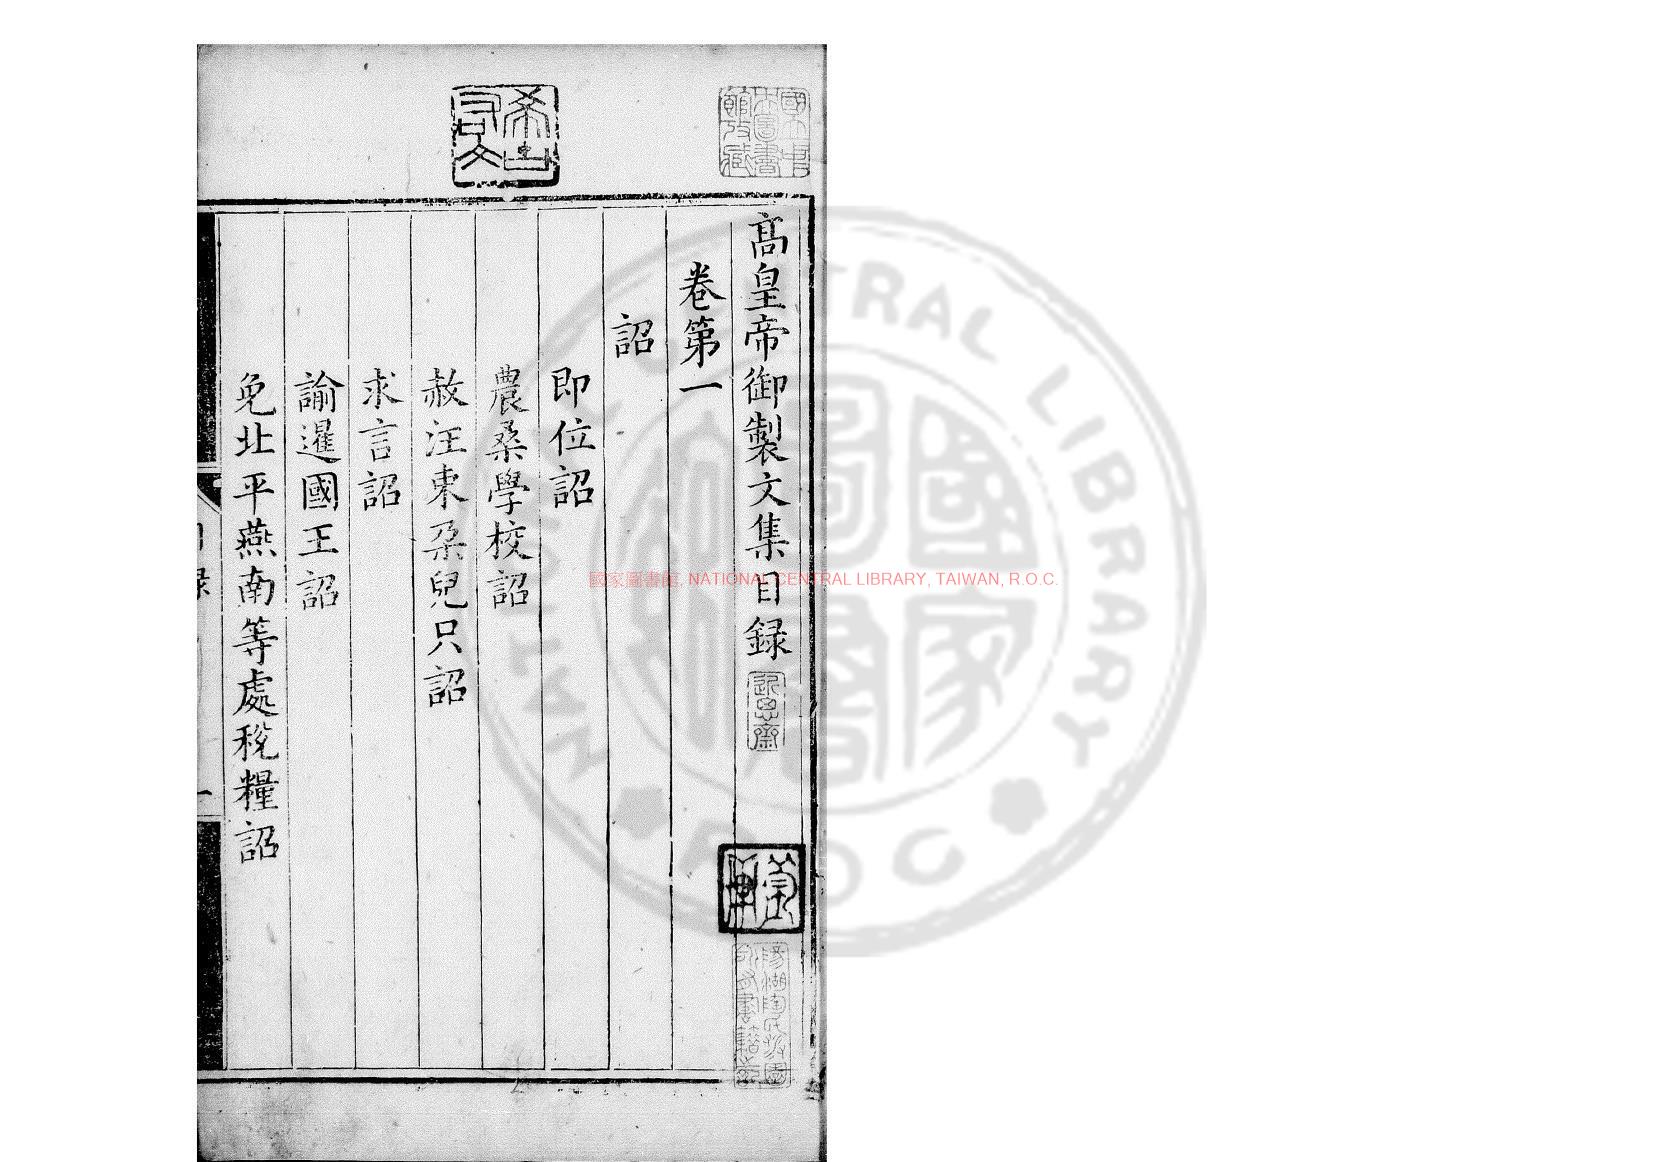 高皇帝御製文集目録
卷第一
詔
即位詔
農桑學校詔
赦汪東朶兒只詔
求言詔
諭暹國王詔
免北平燕南等處稅糧詔
國家圖書館, NATIONAL CENTRAL LIBRARY, TAIWAN, R.O.C.
近思齋
CENTRAL LIBRARY
R O C
國家圖書館